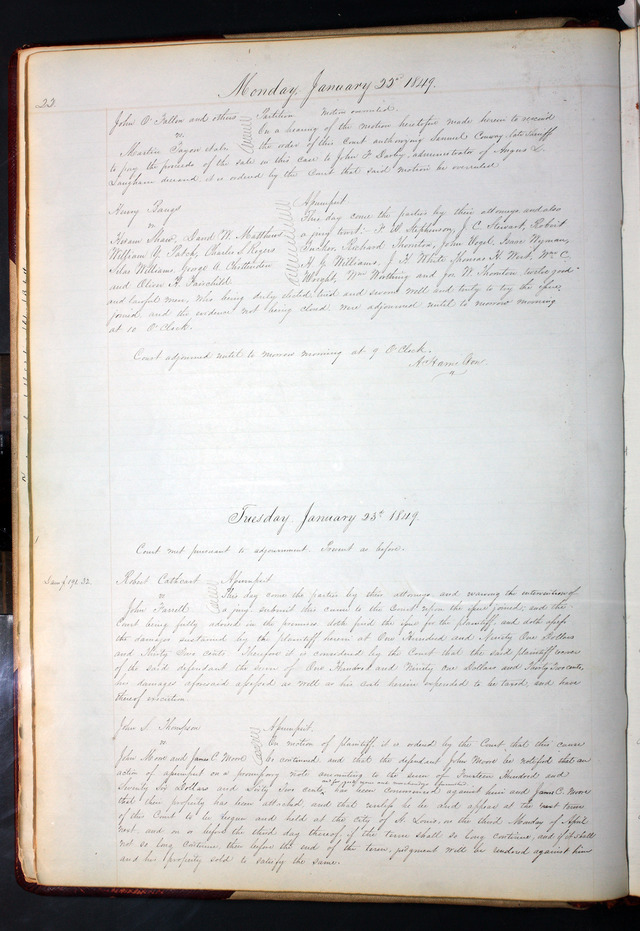 22
Monday, January 22d 1849.
John O'Fallon and others
vs
Martin Taylor
Partition Motion overruled.
On a hearing of the motion heretofore made herein to rescind
the order of this Court authorizing Samuel Conway late Sheriff
to pay the proceeds of the sale in this case to John F Darby, administrator of Angus L.
Langham deceased, it is ordered by the Court that said motion be overruled.
Henry
vs
Hiram Shaw, David W. Matthews
William Y. Patch, Charles S Rogers
Silas Williams, George A. Chittenden
and Oliver H. Fairchild
Assumpsit
This day come the parties by their attorneys and also
a jury to wit: F. A. Stephenson, J. C. Stewart, Robert
Tucker, Richard Thornton, John Vogel, Isaac Wyman,
H. Y. Williams, J. H. White Thomas H. West, Wm C.
Wright, Wm Worthing and Jos. W. Thornton twelve good
and lawful men, who being duly elected, tried and sworn well and truly to try the issue
joined, and the evidence not being closed were adjourned until to morrow morning
at 10 O'Clock.
Court adjourned until to morrow morning at 9 O'Clock.
A Hamilton
Tuesday, January 23d 1849.
Court met pursuant to adjournment. Present as before.
Dam $191.32.
Robert Cathcart
vs
John Farrell
Assumpsit
This day come the parties by their attorneys and waiving the intervention of
a jury submit this cause to the Court upon the issue joined; and the
Court being fully advised in the premises doth find the issue for the plaintiff, and doth assess
the damages sustained by the plaintiff herein at One Hundred and Ninety One Dollars
and Thirty Two cents. Therefore it is considered by the Court that the said plaintiff recover
of the said defendant the sum of One Hundred and Ninety One Dollars and Thirty Two cents,
his damages aforesaid assessed as well as his costs herein expended to be taxed, and have
thereof execution.
John S. Thompson
vs
John Mone and James C. Mone
Assumpsit.
On motion of plaintiff, it is ordered by the Court, that this cause
be continued, and that the defendant John Mone be notified that an
action of assumpsit on a promissory note amounting to the sum of Fourteen Hundred and
Seventy Six Dollars and Sixty Two cents, and for goods wares and merchandize has been commenced against him and James C. Mone
that their property has been attached, and that unless he be and appear at the next term
of this Court to be begun and held at the city of St. Louis, on the third Monday of April
next, and on or before the third day thereof, if the term shall so long continue, and if it shall
not so long continue, then before the end of the term, judgment will be rendered against him
and his property sold to satisfy the same.